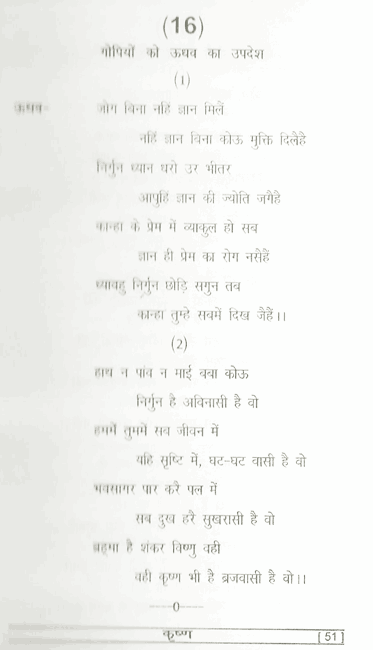 (16)
गोपियों को ऊधव का उपदेश
(1)
ऊधव- जोग बिना नहिं ज्ञान मिलैं
नहिं ज्ञान बिना कोऊ मुक्ति दिलैहै
निर्गुन ध्यान धरो उर भीतर
आपुहिं ज्ञान की ज्योति जगैहै
कान्हा के प्रेम में व्याकुल हो सब
ज्ञान ही प्रेम का रोग नसैहैं
ध्यावहु निर्गुन छोड़ि सगुन तब
कान्हा तुम्हे सबमें दिख जैहैं।।
(2)
हाथ न पांव न माई बबा कोऊ
निर्गुन है अविनासी है वो
हममें तुममें सब जीवन में
यहि सृष्टि में, घट-घट वासी है वो
भवसागर पार करै पल में
सब दुख हरै सुखरासी है वो
ब्रह्मा है शंकर विष्णु वही
वही कृष्ण भी है ब्रजवासी है वो।।
----0----
कृष्ण [51]